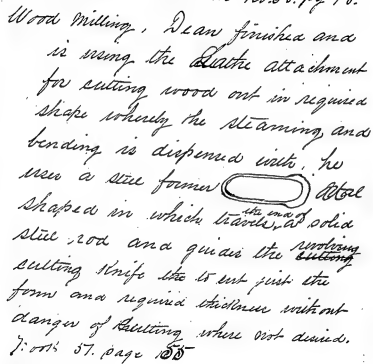 Wood Milling, Dean finished and
is using the Lathe attachment
for cutting wood out in required
shape whereby the steaming and
bending is dispensed with, he
uses a steel former
shaped in which travels the end of a solid
steel rod and guides the revolving cutting
cutting Knife to cut just the
form and required thickness without
danger of cutting where not desired.
page 55